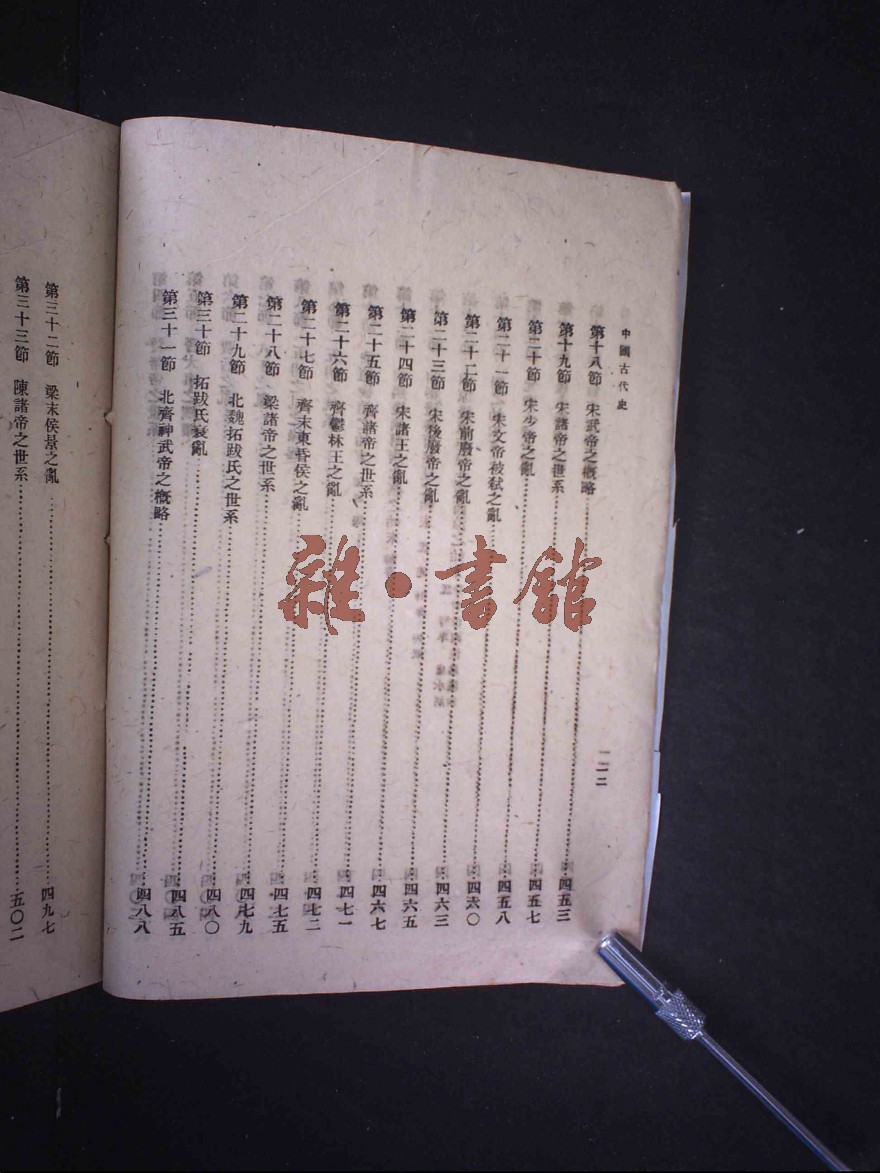 中國古代史
第十八節 宋武帝之槪略……四五三
第十九節 宋諸帝之世系……四五七
第二十節 宋少帝之亂……四五八
第二十一節 宋文帝被弑之亂……四六〇
第二十二節 宋前廢帝之亂……四六三
第二十三節 宋後廢帝之亂……四六五
第二十四節 宋諸王之亂……四六七
第二十五節 齊諸帝之世系……四七一
第二十六節 齊鬱林王之亂……四七二
第二十七節 齊末東昏侯之亂……四七五
第二十八節 梁諸帝之世系……四七九
第二十九節 北魏拓跋氏之世系……四八〇
第三十節 拓跋氏衰亂……四八五
第三十一節 北齊神武帝之槪略……四八八
第三十二節 梁末侯景之亂……四九七
第三十三節 陳諸帝之世系……五〇二
雜·書館